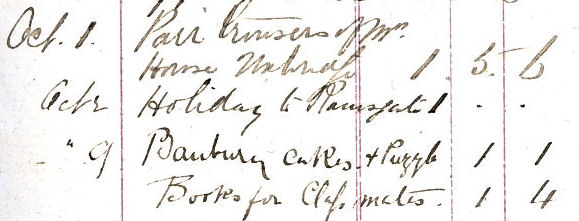 Oct. 1. Pair trousers of Mr.
House Uxbridge 1. 5. 6
Oct 2 Holiday to Ramsgate 1 . .
" 9 Banbury cakes & Puzzle 1 1
Books for Class mates. 1 4